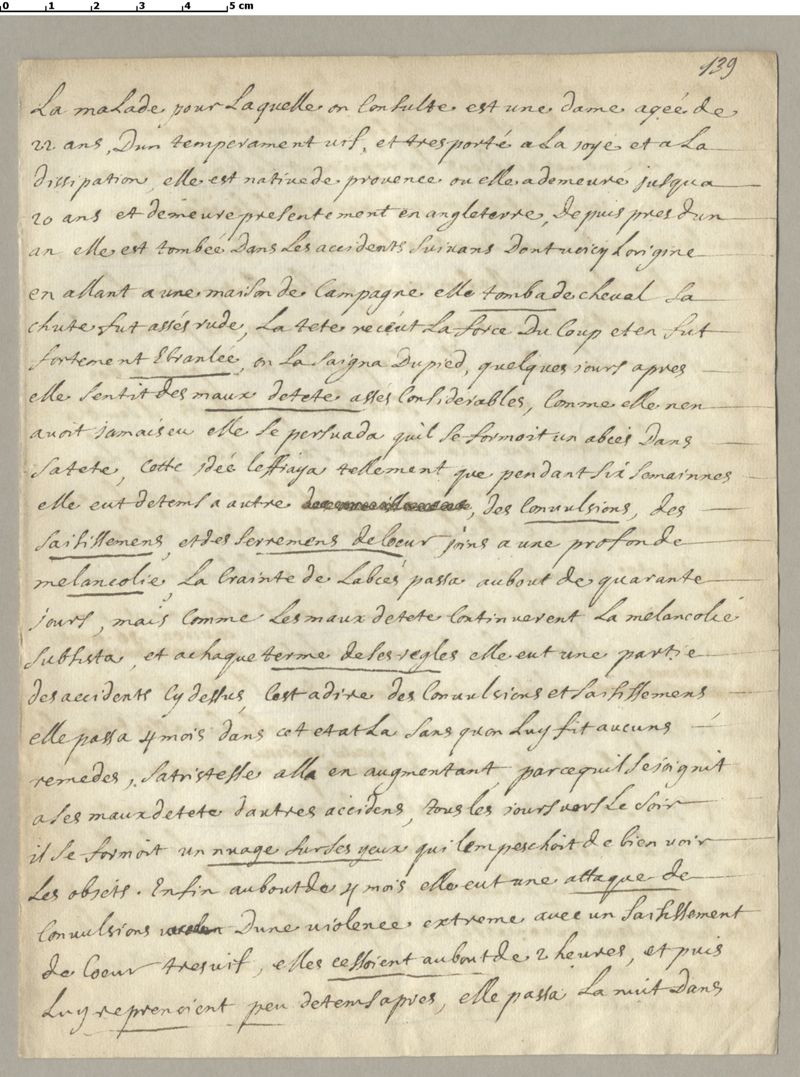 0 1 2 3 4 5 cm
139
La malade pour Laquelle on Consulte est une dame ageé de
22 ans, Dun temperament vif, et tres porté a La joye et a La
dissipation, elle est native de provence ou elle a demeuré jusqua
20 ans et demeure presentement en angleterre, Depuis pres dun
an elle est tombeé Dans Les accidents suivans Dont voicy Lorigine
en allant a une maison de Campagne elle tomba de cheval sa
chute fut assés rude, La tete recéut La force Du Coup et en fut
fortement Ebranleé, on La saigna Du pied, quelques jours apres
elle sentit des maux de tete assés Considerables, Comme elle nen
avoit jamais eu elle se persuada quil se formoit un abcés Dans
sa tete, Cette ideé leffraya tellement que pendant six semainnes
elle eut de tems a autre, des Convulsions, des
saisissemens, et des serremens de Coeur joins a une profonde
melancolie, La Crainte de Labcés passa au bout de quarante
jours, mais Comme Les maux de tete Continuerent La melancolié
subsista, et a chaque terme de ses regles elle eut une partie
des accidents Cy dessus, Cest a dire des Convulsions et saisissemens
elle passa 4 mois dans cet etat La sans quon Luy fit aucuns
remedes, sa tristesse alla en augmentant, parce quil se joignit
a ses maux de tete dautres accidens, tous les jours vers Le soir
il se formoit un nuage sur ses yeux qui lempeschoit de bien voir
Les objets. Enfin au bout de 4 mois elle eut une attaque de
Convulsions Dune violence extreme avec un saisissement
de Coeur tres vif, elles cessoient au bout de 2 heures, et puis
Luy reprenoient peu de tems apres, elle passa La nuit Dans